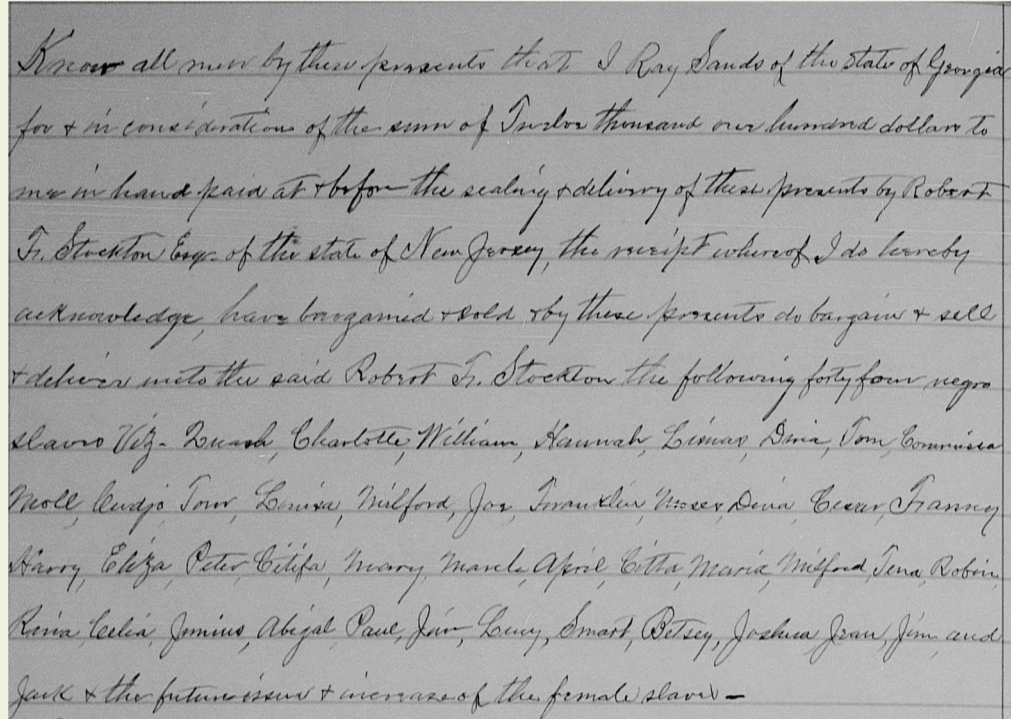 Know all men by these presents that I Ray Sands of the state of Georgia
for & in consideration of the sum of Twelve thousand one hundred dollars to
me in hand paid at & before the sealing & delivery of these presents by Robert
F. Stockton Esqr. of the state of New Jersey, the receipt whereof I do hereby
acknowledge, have bargained & sold & by these presents do bargain & sell
& deliver unto the said Robert F. Stockton the following forty four negro
slaves Viz- Quash, Charlotte, William, Hannah, Dina, Tom,
Moll, Cudjo Tom, Louisa, Milford, Joe, Franklin, Moses, Dina, Cesar, Franny
Harry, Eliza, Peter, Mary, April, Maria, Milford, Tena, Robin,
Celia, Junius, Abigal Paul, Lucy, Smart, Betsey, Joshua Jim and
Jack & the future issue & increase of the female slaves -